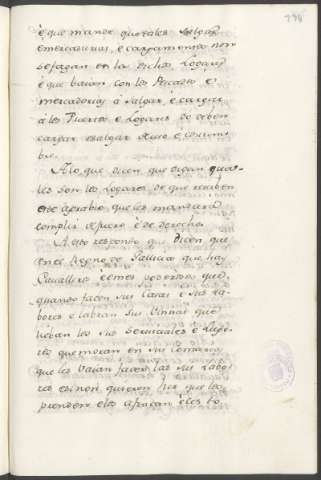 è que mande que tales salgas
è mercadurias, è cargamentos non
se fagan en los dichos Logares
è que baian con los Pescados è
mercadorias à salgar, è cargar
à los Puertos è Logares do deben
cargar è salgar è uso è costum-
bre.
A lo que dicen que digan qua-
les son los Logares de que reciben
este agrabio que les mandará
complir de fuero è de derecho.
A esto respondo que dicen que
en el Regno de Galicia que hay
Cavalleros è omes poderosos que
quando facen sus casas è sus la-
bores è labran sus vinnas que
lieban los sus
que moran en sus comarcas
que les vaian facer las sus labo-
res è si non quieren ir que los
prenden è los afincan è les to-